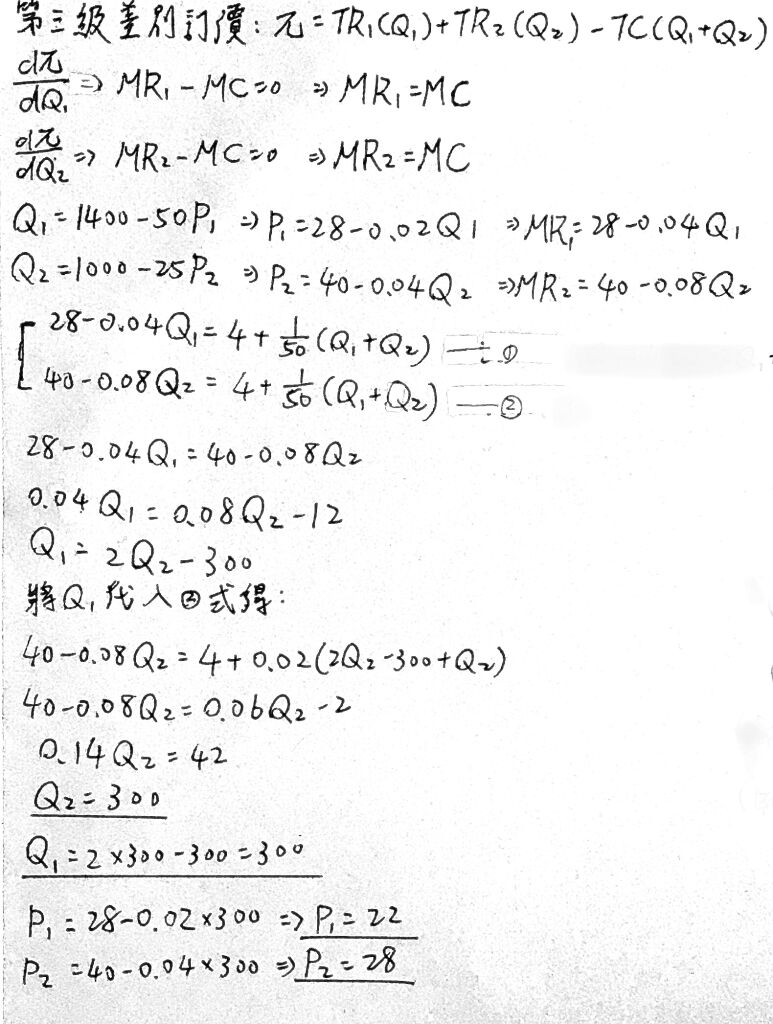 第三級差別訂價: π = TR₁(Q₁) + TR₂(Q₂) - TC(Q₁+Q₂)
dπ/dQ₁ ⇒ MR₁ - MC = 0 ⇒ MR₁ = MC
dπ/dQ₂ ⇒ MR₂ - MC = 0 ⇒ MR₂ = MC
Q₁ = 1400 - 50P₁ ⇒ P₁ = 28 - 0.02Q₁ ⇒ MR₁ = 28 - 0.04Q₁
Q₂ = 1000 - 25P₂ ⇒ P₂ = 40 - 0.04Q₂ ⇒ MR₂ = 40 - 0.08Q₂
28 - 0.04Q₁ = 4 + 1/50 (Q₁+Q₂) — ①
40 - 0.08Q₂ = 4 + 1/50 (Q₁+Q₂) — ②
28 - 0.04Q₁ = 40 - 0.08Q₂
0.04Q₁ = 0.08Q₂ - 12
Q₁ = 2Q₂ - 300
將Q₁代入②式得:
40 - 0.08Q₂ = 4 + 0.02(2Q₂ - 300 + Q₂)
40 - 0.08Q₂ = 0.06Q₂ - 2
0.14Q₂ = 42
Q₂ = 300
Q₁ = 2×300 - 300 = 300
P₁ = 28 - 0.02×300 ⇒ P₁ = 22
P₂ = 40 - 0.04×300 ⇒ P₂ = 28